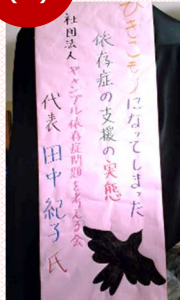 ひきこもりになってしまった
依存症の支援の実態
社団法人 ギャンブル依存症問題を考える会
代表 田中 紀子 氏